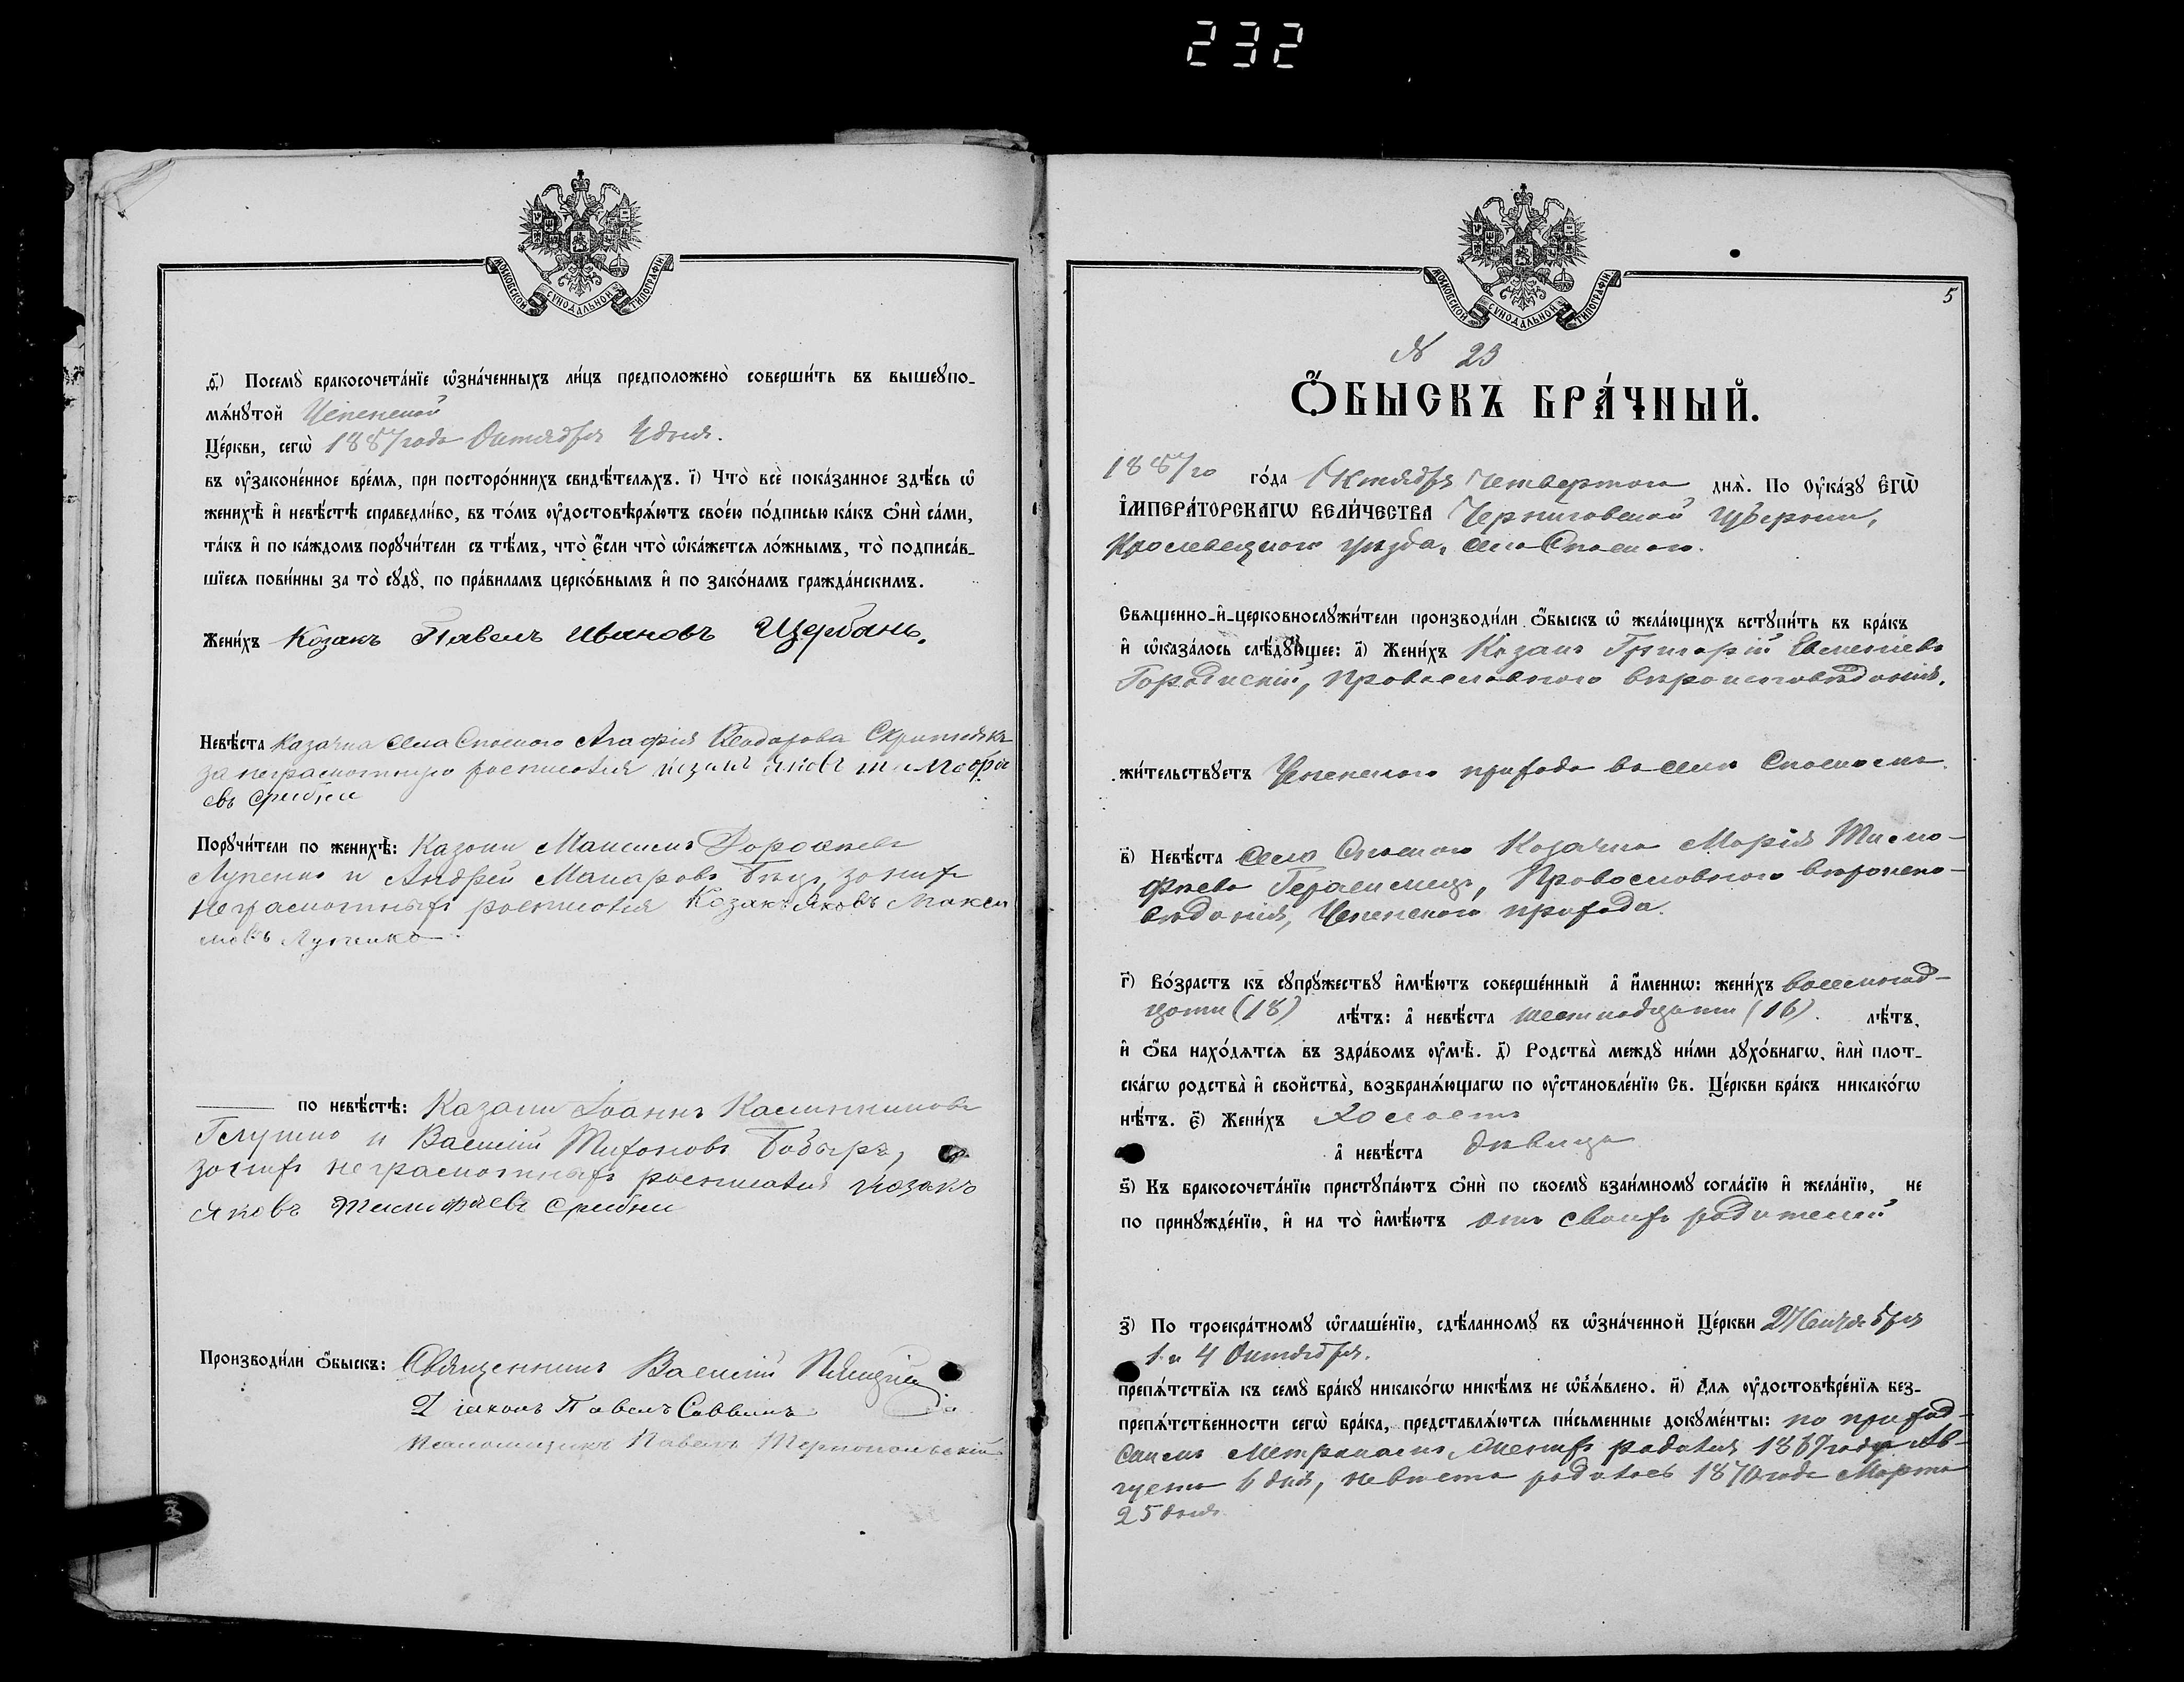 232
МОСКОВСКОЙ СѴНОДАЛЬНОЙ ТИПОГРАФІИ
ѳ҃) Посемꙋ̀ бракосочета́нїе ѡ҆зна́ченныхъ ли́цъ предположено̀ соверши́ть въ вышеꙋпо-
мѧ́нꙋтой
Це́ркви, сегѡ̀ 1887 года Октября 4 дня.
въ оу҆законе́нное вре́мѧ, при посторо́ннихъ свидѣ́телѧхъ. і҃) Что̀ всѐ пока́занное здѣ́сь ѡ҆
женихѣ̀ и҆ невѣ́стѣ справедли́во, въ то́мъ оу҆достовѣрѧ́ютъ свое́ю по́дписью ка́къ ѻ҆нѝ са́ми,
та́къ и҆ по ка́ждомъ порꙋчи́тели съ тѣ́мъ, что̀ є҆́сли что̀ ѡ҆ка́жетсѧ ло́жнымъ, то̀ подписа́в-
шїесѧ пови́нны за то̀ сꙋдꙋ̀, по пра́виламъ церко́внымъ и҆ по зако́намъ гражда́нскимъ.
Жени́хъ Козакъ Павелъ Ивановъ Щербань.
Невѣ́ста Казачка села Спаского Агафія Ѳеодорова
за неграмотную росписался козакъ Яковъ Тимофѣ
евъ Срибни
Порꙋчи́тели по женихѣ̀: Казаки Максимъ Дорофѣевъ
Лупенко и Андрей Макаровъ за нихъ
неграмотныхъ росписался Козакъ Яковъ Макси
мовъ Лупенко
по невѣ́стѣ: Казаки Іоаннъ Калинниковъ
Глушко и Василій Тихоновъ Бобырь,
за нихъ неграмотныхъ росписался козакъ
Яковъ Тимофѣевъ Срибни
Производи́ли ѻ҆́быскъ: Священникъ Василій
Діаконъ Павелъ Саввинъ
Псаломщикъ Павелъ Тернопольскій
МОСКОВСКОЙ СѴНОДАЛЬНОЙ ТИПОГРАФІИ
5
№ 23
Ѻ҆́БЫСКЪ БРА́ЧНЫЙ.
1887го го́да Октября Четвертого днѧ̀. По Оу҆ка́зꙋ Є҆гѡ̀
І҆МПЕРА́ТОРСКАГѠ ВЕЛИ́ЧЕСТВА Черниговской губерніи,
Кролевецкого уѣзда, села Спаского.
Свѧщенно-и҆-церковнослꙋжи́тели производи́ли ѻ҆́быскъ ѡ҆ жела́ющихъ встꙋпи́ть въ бра́къ
и҆ ѡ҆каза́лось слѣ́дꙋющее: а҃) Жени́хъ Козакъ Григорій Евменіевъ
Городискій, православного вѣроисповѣданія.
жи́тельствꙋетъ прихода въ селѣ Спаскомъ.
в҃) Невѣ́ста села Спаского Козачка Марія Тимо-
фѣева Православного вѣроиспо-
вѣданія, прихода.
г҃) Во́зрастъ къ сꙋпрꙋ́жествꙋ и҆мѣ́ютъ соверше́нный а҆ и҆́меннѡ: жени́хъ восемнад-
цати (18) лѣ́тъ: а҆ невѣ́ста шестнадцати (16). лѣ́тъ,
и҆ ѻ҆́ба нахо́дѧтсѧ въ здра́вомъ оу҆мѣ̀. д҃) Родства̀ междꙋ̀ ни́ми дꙋхо́внагѡ, и҆лѝ плот-
ска́гѡ родства̀ и҆ свойства̀, возбранѧ́ющагѡ по оу҆становле́нїю Св. Це́ркви бра́къ никако́гѡ
нѣ́тъ. є҃) Жени́хъ Холостъ
а҆ невѣ́ста дѣвица
ѕ҃) Къ бракосочета́нїю пристꙋпа́ютъ ѻ҆нѝ по своемꙋ̀ взаи́мномꙋ согла́сїю и҆ жела́нїю, не
по принꙋжде́нїю, и҆ на то̀ и҆мѣ́ютъ отъ своихъ родителей
з҃) По троекра́тномꙋ ѡ҆глаше́нїю, сдѣ́ланномꙋ въ ѡ҆зна́ченной Це́ркви 27 Сентября
1 и 4 Октября.
препѧ́тствїѧ къ семꙋ̀ бра́кꙋ никако́гѡ никѣ́мъ не ѡ҆бъѧ́влено. и҃) Длѧ оу҆достовѣре́нїѧ без-
препѧ́тственности сегѡ̀ бра́ка, представлѧ́ютсѧ пи́сьменные докꙋме́нты: по приход-
скимъ Метрикамъ, женихъ родился 1869 года Ав-
густа 6 дня, невѣста родилась 1870 года Марта
25 дня.